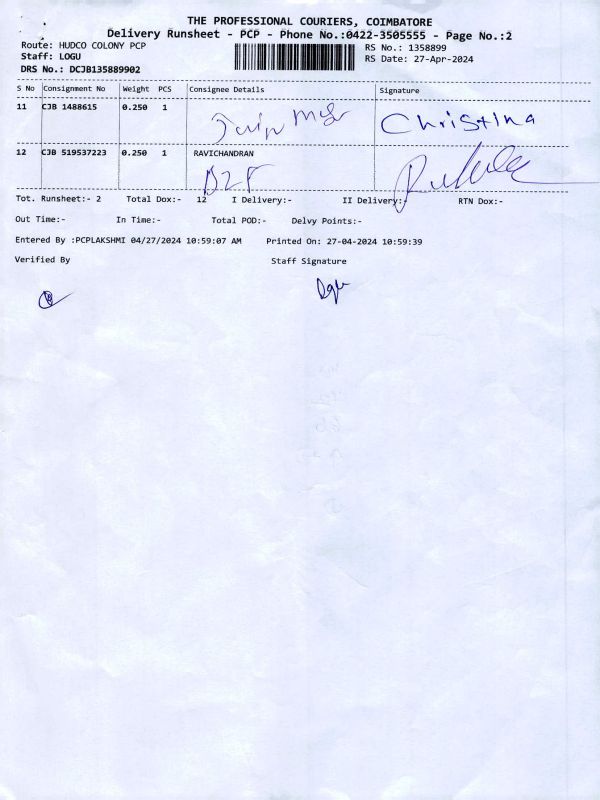 THE PROFESSIONAL COURIERS, COIMBATORE
Delivery Runsheet - PCP - Phone No.:0422-3505555 - Page No.:2
Route: HUDCO COLONY PCP
RS No.: 1358899
Staff: LOGU
RS Date: 27-Apr-2024
DRS No.: DCJB135889902
S No Consignment No Weight PCS Consignee Details Signature
11 CJB 1488615 0.250 1 Christina
12 CJB 519537223 0.250 1 RAVICHANDRAN
Tot. Runsheet:- 2 Total Dox:- 12 I Delivery:- II Delivery:- RTN Dox:-
Out Time:- In Time:- Total POD:- Delvy Points:-
Entered By :PCPLAKSHMI 04/27/2024 10:59:07 AM Printed On: 27-04-2024 10:59:39
Verified By Staff Signature